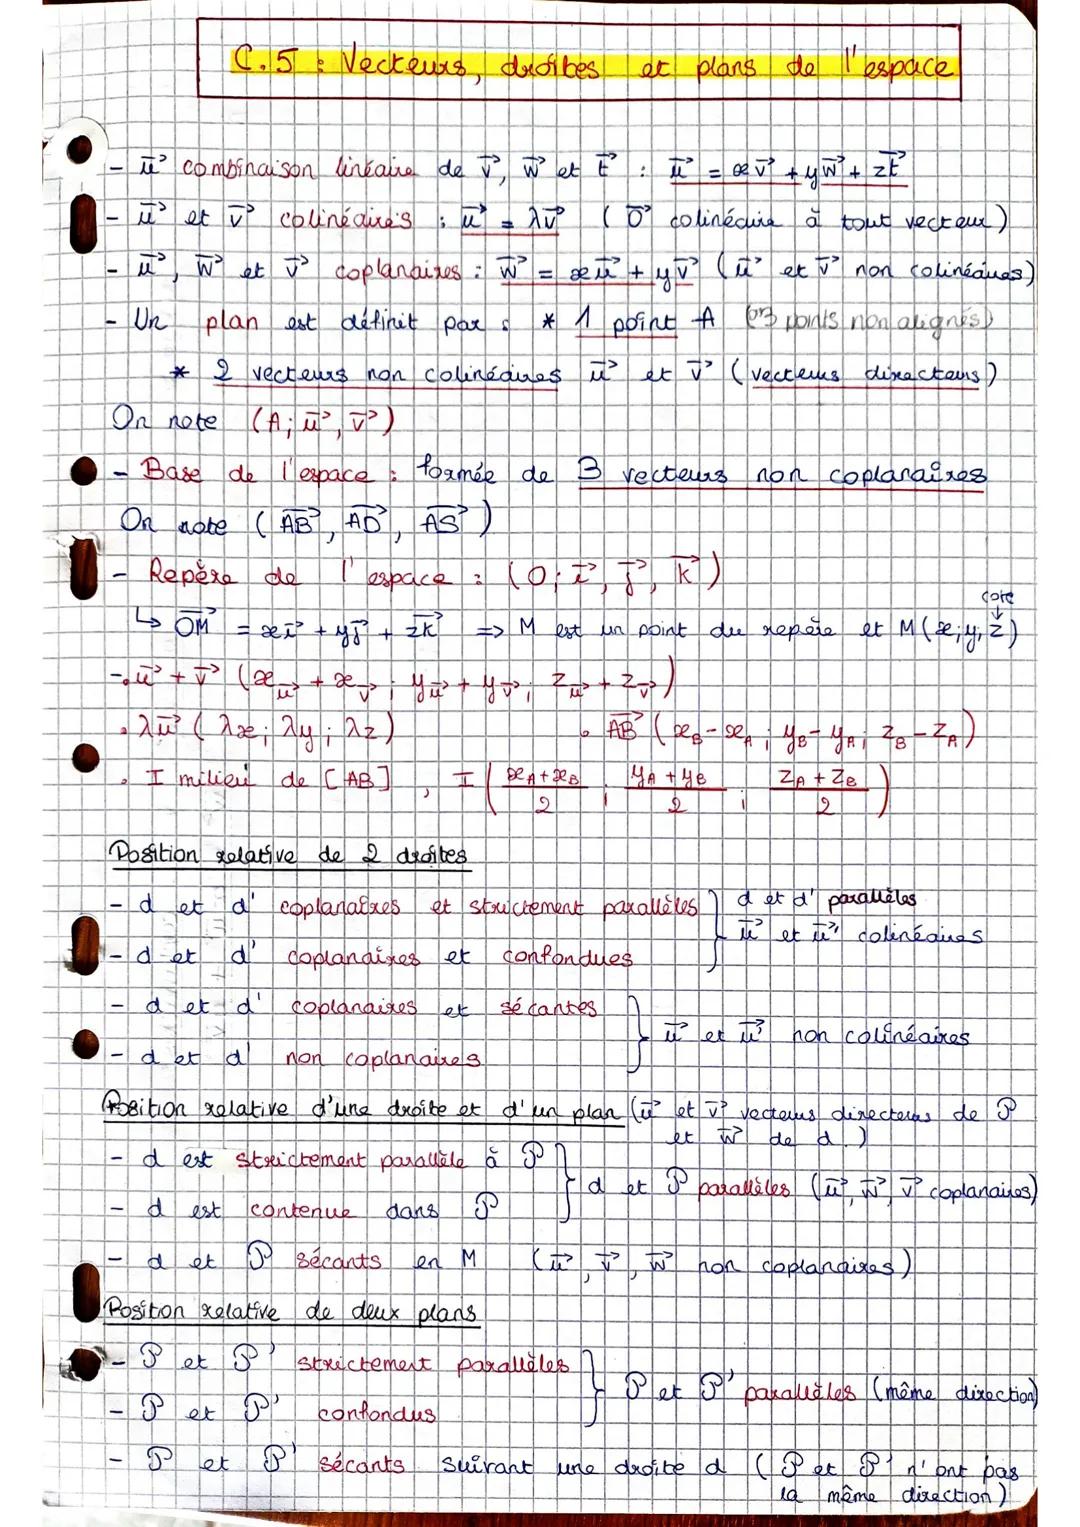 C.5 : Vecteurs, droites et plans de l'espace
- u⃗ combinaison linéaire de v⃗, w⃗ et t⃗ : u⃗ = xv⃗ + yw⃗ + zt⃗
- u⃗ et v⃗ colinéaires : u⃗ = λv⃗ (0⃗ colinéaire à tout vecteur)
- u⃗, w⃗ et v⃗ coplanaires : w⃗ = xu⃗ + yv⃗ (u⃗ et v⃗ non colinéaires)
- Un plan est définit par : * 1 point A (ou 3 points non alignés)
* 2 vecteurs non colinéaires u⃗ et v⃗ (vecteurs directeurs)
On note (A; u⃗, v⃗)
- Base de l'espace : formée de 3 vecteurs non coplanaires
On note (AB⃗, AD⃗, AS⃗)
- Repère de l'espace : (O; i⃗, j⃗, k⃗)
cote
↳ OM⃗ = xi⃗ + yj⃗ + zk⃗ => M est un point du repère et M(x; y, z)
- • u⃗ + v⃗ (x_u⃗ + x_v⃗ ; y_u⃗ + y_v⃗ ; z_u⃗ + z_v⃗)
• λu⃗ (λx; λy; λz) • AB⃗ (x_B - x_A ; y_B - y_A ; z_B - z_A)
• I milieu de [AB], I ((x_A + x_B)/2 ; (y_A + y_B)/2 ; (z_A + z_B)/2)
Position relative de 2 droites
- d et d' coplanaires et strictement parallèles } d et d' parallèles
u⃗ et u⃗' colinéaires
- d et d' coplanaires et confondues
- d et d' coplanaires et sécantes
} u⃗ et u⃗' non colinéaires
- d et d' non coplanaires
Position relative d'une droite et d'un plan (u⃗ et v⃗ vecteurs directeurs de P
et w⃗ de d.)
- d est strictement parallèle à P
} d et P parallèles (u⃗, w⃗, v⃗ coplanaires)
- d est contenue dans P
- d et P sécants en M (u⃗, v⃗, w⃗ non coplanaires)
Position relative de deux plans
- P et P' strictement parallèles
} P et P' parallèles (même direction)
- P et P' confondus
- P et P' sécants suivant une droite d (P et P' n'ont pas
la même direction)